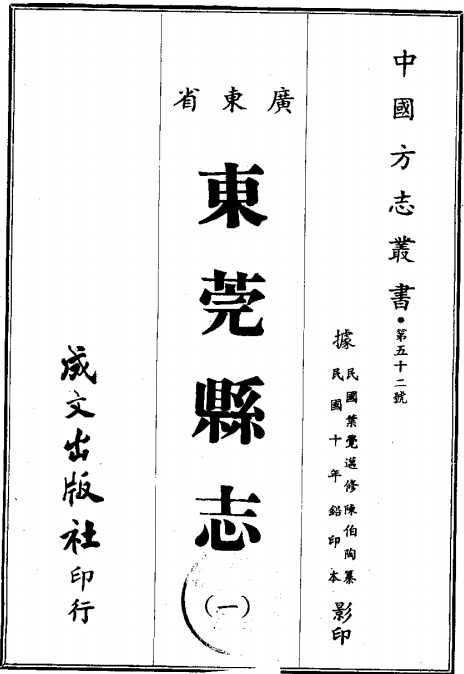 中國方志叢書•第五十二號
據
民國葉覺邁修陳伯陶纂
民國十年鉛印本
影印
廣東省
東莞縣志
(一)
成文出版社印行